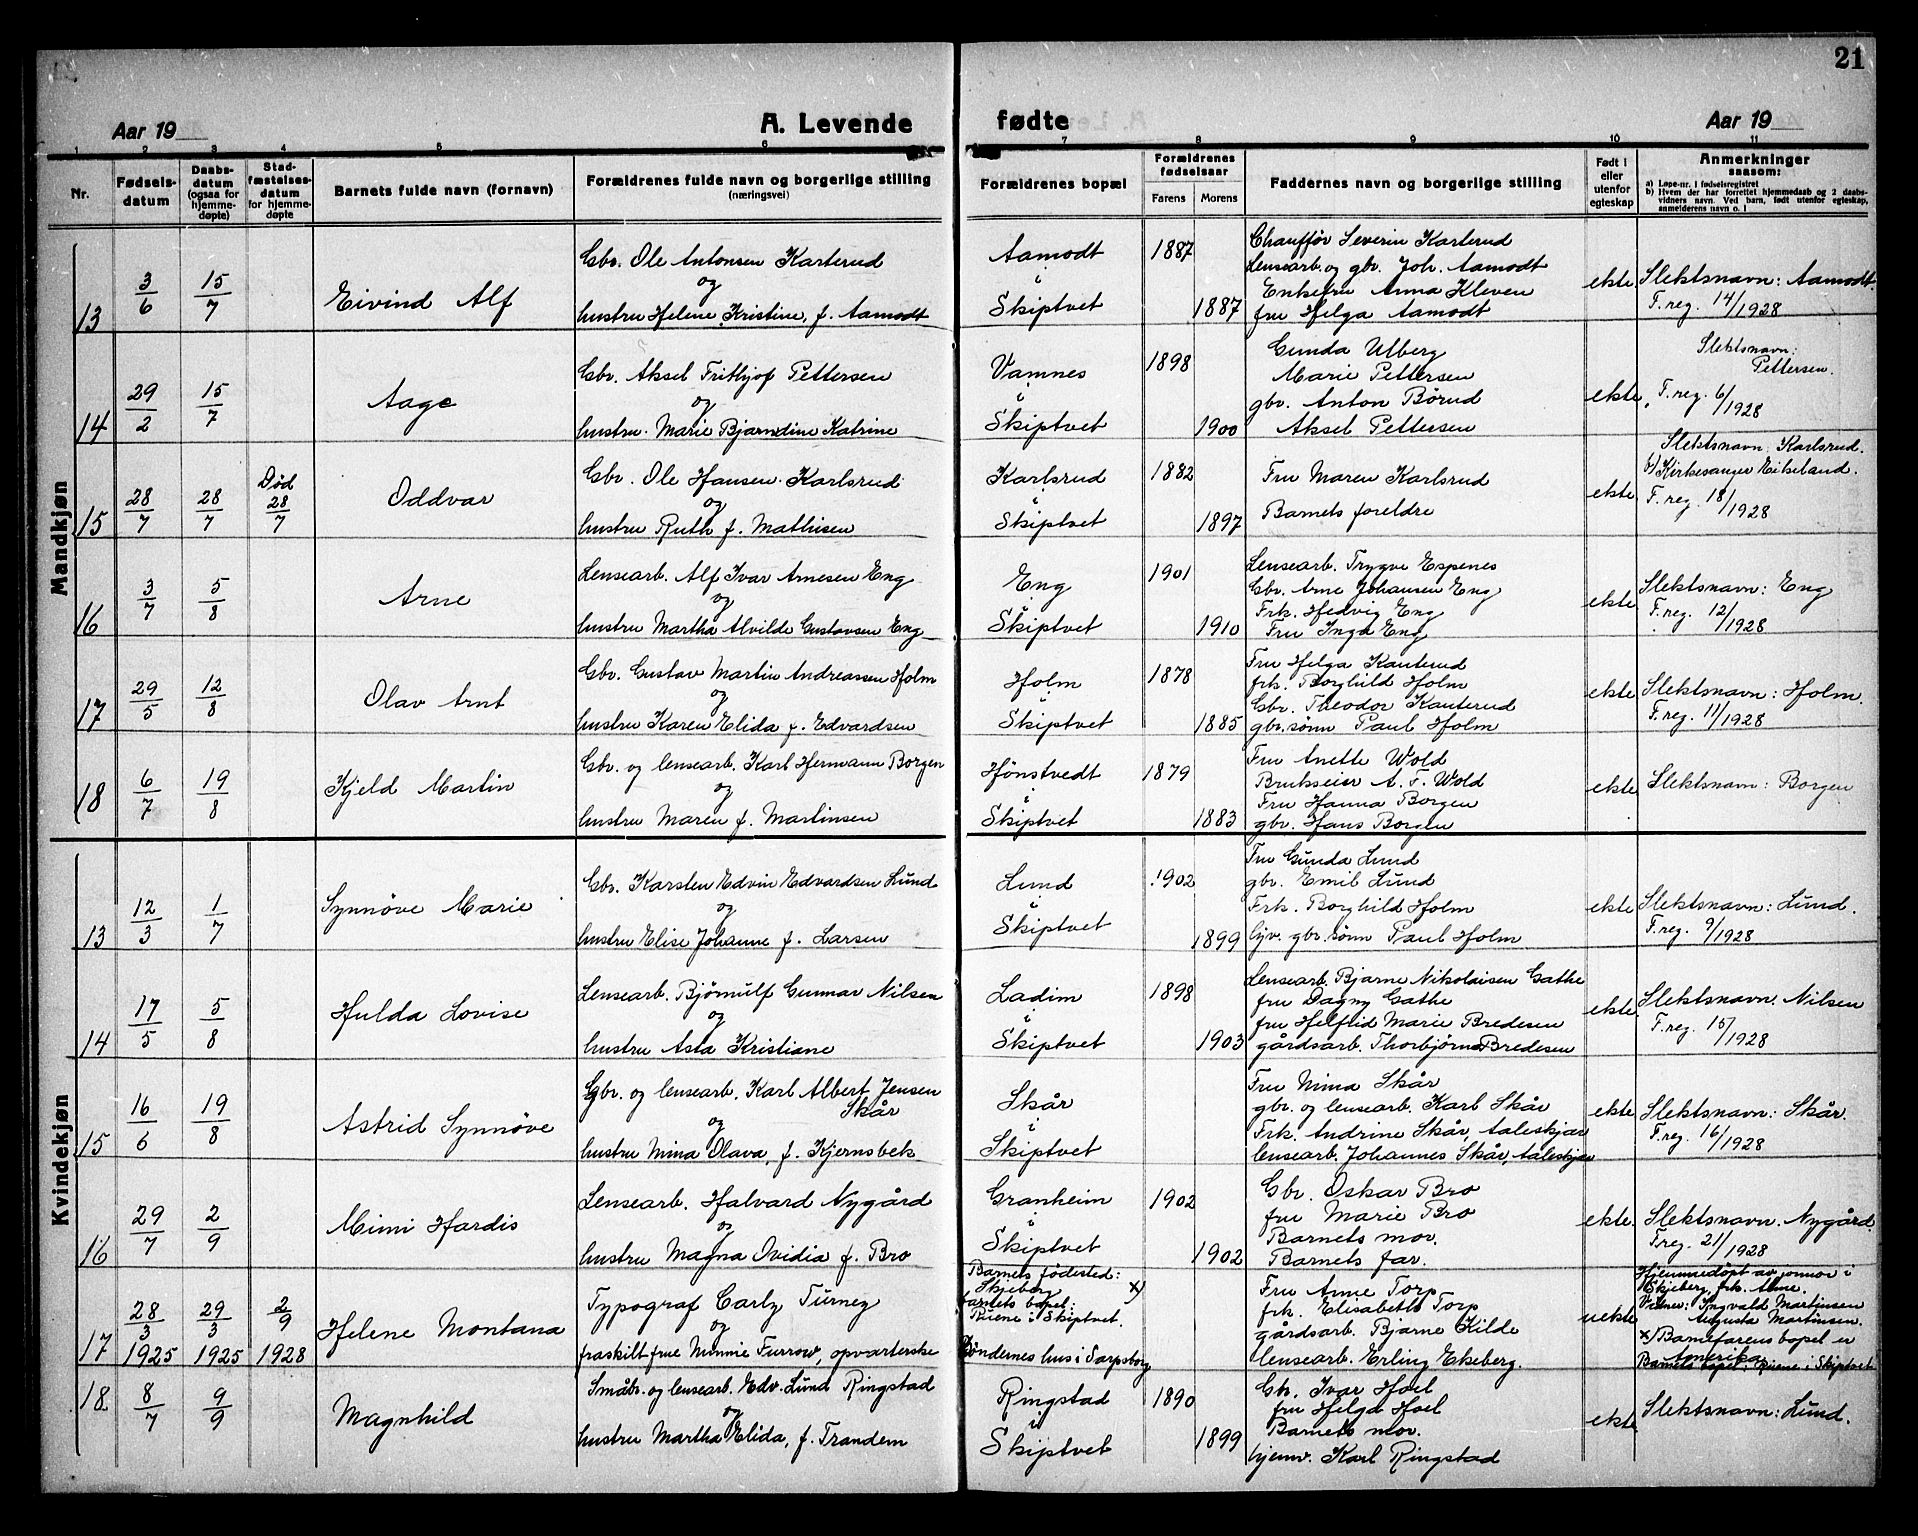 21
Aar 19
A. Levende
fødte
Aar 19
1 2 3 4 5 6 7 8 9 10 11
Nr.
Fødsels-
datum
Daabs-
datum
(ogsaa for
hjemme-
døpte)
Stad-
fæstelses-
datum
for hjemme-
døpte
Barnets fulde navn (fornavn)
Forældrenes fulde navn og borgerlige stilling
(næringsvei)
Forældrenes bopæl
Forældrenes
fødselsaar
Farens Morens
Faddernes navn og borgerlige stilling
Født i
eller
utenfor
egteskap
Anmerkninger
saasom:
a) Løpe-nr. i fødselsregistret
b) Hvem der har forrettet hjemmedaab og 2 daabs-
vidners navn. Ved barn, født utenfor egteskap,
anmelderens navn o. l
Mandkjøn
13
3/6
15/7
Eivind Alf
Gbr. Ole Antonsen Karterud
og
hustru Helene Kristine, f. Aamodt
Aamodt
i
Skiptvet
1887
1887
Chauffør Severin Karterud
Lensearb. og gbr. Joh. Aamodt
Enkefru Anna Kleven
fru Helga Aamodt
ekte
Slektsnavn: Aamodt.
F. reg. 14/1928
14
29/2
15/7
Aage
Gbr. Aksel Frithjof Pettersen
og
hustru Marie Bjarndine Katrine
Vamnes
i
Skiptvet
1898
1900
Gunda Ulberg
Marie Pettersen
gbr. Anton Børud
Aksel Pettersen
ekte
Slektsnavn:
Pettersen.
F. reg. 6/1928
15
28/7
28/7
Død
28/7
Oddvar
Gbr. Ole Hansen Karlsrud
og
hustru Ruth f. Mathisen
Karlsrud
i
Skiptvet
1882
1897
Fru Maren Karlsrud
Barnets foreldre
ekte
Slektsnavn: Karlsrud.
b) Kirkesanger Eikeland.
F. reg. 18/1928
16
3/7
5/8
Arne
Lensearb. Alf Ivar Arnesen Eng
og
hustru Martha Alvilde Gustavsen Eng
Eng
i
Skiptvet
1901
1910
Lensearb. Trygve Espenes
Gbr. Arne Johansen Eng
Frk. Hedvig Eng
Fru Inga Eng
ekte
Slektsnavn: Eng
F. reg. 12/1928
17
29/5
12/8
Olav Arnt
Gbr. Gustav Martin Andreassen Holm
og
hustru Karen Elida f. Edvardsen
Holm
i
Skiptvet
1878
1885
Fru Helga Kauterud
frk. Borghild Holm
Gbr. Theodor Kauterud
gbr.sønn Paul Holm
ekte
Slektsnavn: Holm.
F. reg. 11/1928
18
6/7
19/8
Kjeld Martin
Gbr. og lensearb. Karl Hermann Borgen
og
hustru Maren f. Martinsen
Hønstvedt
i
Skiptvet
1879
1883
Fru Anette Wold
Brukseier A. F. Wold
Fru Hanna Borgen
gbr. Hans Borgen
ekte
Slektsnavn: Borgen
Kvindekjøn
13
12/3
1/7
Synnøve Marie
Gbr. Karsten Edvin Edvardsen Lund
og
hustru Elise Johanne f. Larsen
Lund
i
Skiptvet
1902
1899
Fru Gunda Lund
gbr. Emil Lund
Frk. Borghild Holm
hjv. gbr.sønn Paul Holm
ekte
Slektsnavn: Lund.
F. reg. 9/1928
14
17/5
5/8
Hulda Lovise
Lensearb. Bjørnulf Gunnar Nilsen
og
hustru Asta Kristiane
Ladim
i
Skiptvet
1898
1903
Lensearb. Bjarne Nikolaisen Gathe
fru Dagny Gathe
fru Helflid Marie Bredesen
gårdsarb. Thorbjørn Bredesen
ekte
Slektsnavn. Nilsen
F. reg. 15/1928
15
16/6
19/8
Astrid Synnøve
Gbr. og lensearb. Karl Albert Jensen
Skår
og
hustru Mina Olava, f. Kjernsbek
Skår
i
Skiptvet
Fru Mina Skår
gbr. og lensearb. Karl Skår
Frk. Andrine Skår, Aaleskjær
lensearb. Johannes Skår, Aaleskjær
ekte
Slektsnavn: Skår.
F. reg. 16/1928
16
29/7
2/9
Mimi Hardis
Lensearb. Halvard Nygård
og
hustru Magna Ovidia f. Bro
Granheim
i
Skiptvet
1902
1902
Gbr. Oskar Bro
fru Marie Bro
Barnets mor.
Barnets far.
ekte.
Slektsnavn. Nygård
F. reg. 21/1928
17
28/3
1925
29/3
1925
2/9
1928
Helene Montana
Typograf Carly Turney
og
fraskilt frue Minnie Furrow, opvarterske
Barnets fødested:
Skjeberg x)
Barnets bopel:
Ruene i Skiptvet.
Bøndernes hus i Sarpsborg
Fru Anne Torp
frk. Elisabeth Torp
gårdsarb. Bjarne Kilde
lensearb. Erling Ekeberg.
uekte
Hjemmedøpt av jormor i
Skjeberg, frk. Anne.
Vidner: Ingvald Martinsen
Augusta Martinsen.
x) Barnefarens bopel er
Amerika
Barnets bopel: Ruene i Skiptvet
18
8/7
9/9
Magnhild
Småbr. og lensearb. Edv. Lund Ringstad
og
hustru Martha Elida, f. Trandem
Ringstad
i
Skiptvet
1890
1899
Gbr. Ivar Hoel
fru Helga Hoel
Barnets mor.
hjemv. Karl Ringstad
ekte
Slektsnavn: Lund.